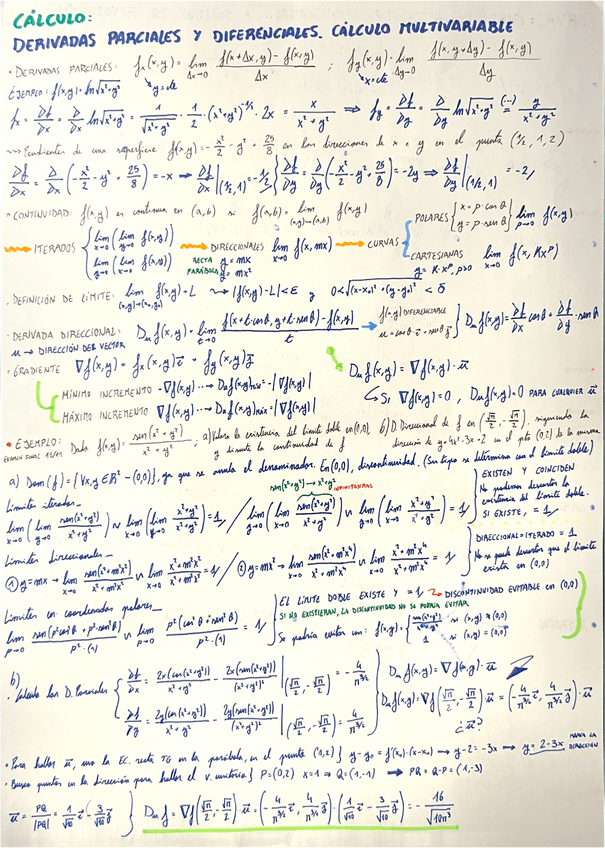 CÁLCULO:
DERIVADAS PARCIALES Y DIFERENCIALES. CÁLCULO MULTIVARIABLE
• DERIVADAS PARCIALES: f_x(x,y) = lim_{Δx→0} (f(x+Δx,y) - f(x,y))/Δx ; f_y(x,y) = lim_{Δy→0} (f(x,y+Δy) - f(x,y))/Δy
↘ y=cte ↘ x=cte
EJEMPLO: f(x,y) = ln√(x²+y²)
f_x = ∂f/∂x = ∂/∂x ln√(x²+y²) = 1/√(x²+y²) · 1/2 · (x²+y²)^(-1/2) · 2x = x/(x²+y²) ⇒ f_y = ∂f/∂y = ∂/∂y ln√(x²+y²) (...)= y/(x²+y²)
Pendientes de una superficie f(x,y) = -x²/2 - y² + 25/8 en las direcciones de x e y en el punto (1/2, 1, 2)
∂f/∂x = ∂/∂x(-x²/2 - y² + 25/8) = -x ⇒ ∂f/∂x|(1/2,1) = -1/2 } ∂f/∂y = ∂/∂y(-x²/2 - y² + 25/8) = -2y ⇒ ∂f/∂y|(1/2,1) = -2
• CONTINUIDAD: f(x,y) es continua en (a,b) si f(a,b) = lim_{(x,y)→(a,b)} f(x,y)
→ ITERADOS { lim_{x→0}(lim_{y→0} f(x,y)) lim_{y→0}(lim_{x→0} f(x,y)) → DIRECCIONALES lim_{x→0} f(x,mx) → CURVAS
RECTA y=mx
PARÁBOLA y=mx²
POLARES { x=ρ·cosθ y=ρ·senθ } lim_{ρ→0} f(x,y)
CARTESIANAS lim_{x→0} f(x, Kx^p)
y=K·x^p, p>0
• DEFINICIÓN DE LÍMITE: lim_{(x,y)→(x₀,y₀)} f(x,y) = L → |f(x,y)-L| < ε y 0<√((x-x₀)²+(y-y₀)²) < δ
• DERIVADA DIRECCIONAL: D_u f(x,y) = lim_{t→0} (f(x+t·cosθ, y+t·senθ) - f(x,y))/t →
u → DIRECCIÓN DEL VECTOR
f(x,y) DIFERENCIABLE
u = cosθ·i + senθ·j } D_u f(x,y) = ∂f/∂x cosθ + ∂f/∂y · senθ
• GRADIENTE ∇f(x,y) = f_x(x,y)i + f_y(x,y)j
D_u f(x,y) = ∇f(x,y)·u
MÍNIMO INCREMENTO -∇f(x,y) → D_u f(x,y)mín = -|∇f(x,y)|
MÁXIMO INCREMENTO ∇f(x,y) → D_u f(x,y)máx = |∇f(x,y)|
↪ SI ∇f(x,y) = 0, D_u f(x,y) = 0 PARA CUALQUIER u
• EJEMPLO: Dado f(x,y) = sen(x²+y²)/(x²+y²), a) Valora la existencia del límite doble en (0,0), y discute la continuidad de f
b) D. Direccional de f en (√π/2, -√π/2), siguiendo la dirección de y=4x²-3x+2 en el pto (0,2) de la misma
a) Dom(f) = {∀x,y ∈ R² - (0,0)}, ya que se anula el denominador. En (0,0), discontinuidad. (Su tipo se determina con el límite doble)
sen(x²+y²) → x²+y²
INFINITESIMAL
Límites iterados_
lim_{x→0}(lim_{y→0} sen(x²+y²)/(x²+y²)) ∿ lim_{x→0}(lim_{y→0} (x²+y²)/(x²+y²)) = 1 / lim_{y→0}(lim_{x→0} sen(x²+y²)/(x²+y²)) ∿ lim_{y→0}(lim_{x→0} (x²+y²)/(x²+y²)) = 1
EXISTEN Y COINCIDEN
No podemos descartar la
existencia del límite doble.
SI EXISTE, = 1
Límites direccionales_
① y=mx → lim_{x→0} sen(x²+m²x²)/(x²+m²x²) ∿ lim_{x→0} (x²+m²x²)/(x²+m²x²) = 1 / ② y=mx² → lim_{x→0} sen(x²+m²x⁴)/(x²+m²x⁴) ∿ lim_{x→0} (x²+m²x⁴)/(x²+m²x⁴) = 1
DIRECCIONAL=ITERADO = 1
No se puede descartar que el límite
exista en (0,0)
Límites en coordenadas polares_
lim_{ρ→0} sen(ρ²cos²θ + ρ²sen²θ)/(ρ²·(1)) ∿ lim_{ρ→0} ρ²(cos²θ + sen²θ)/(ρ²·(1)) = 1
EL LÍMITE DOBLE EXISTE Y = 1 → DISCONTINUIDAD EVITABLE en (0,0)
SI NO EXISTIERAN, LA DISCONTINUIDAD NO SE PODRÍA EVITAR
Se podría evitar con: f(x,y) = { sen(x²+y²)/(x²+y²) si (x,y) ≠ (0,0) 1 si (x,y) = (0,0)
b)
• Calculo las D. Parciales { ∂f/∂x = 2x(cos(x²+y²))/(x²+y²) - 2x(sen(x²+y²))/(x²+y²)² |(√π/2, -√π/2) = -4/π^(3/2)
∂f/∂y = 2y(cos(x²+y²))/(x²+y²) - 2y(sen(x²+y²))/(x²+y²)² |(√π/2, -√π/2) = 4/π^(3/2)
D_u f(x,y) = ∇f(x,y)·u
D_u f(x,y) = ∇f(√π/2, -√π/2)·u = (-4/π^(3/2) i, 4/π^(3/2) j)·u
¿u?
• Para hallar u, uso la EC. recta TG en la parábola, en el punto (0,2) } y-y₀ = f'(x₀)·(x-x₀) → y-2 = -3x → y = 2-3x MARCA LA DIRECCIÓN
• Busco puntos en la dirección para hallar el v. unitario } P=(0,2) x=1 → Q=(1,-1) → PQ = Q-P = (1,-3)
u = PQ/|PQ| = 1/√10 i - 3/√10 j } D_u f = ∇f(√π/2, -√π/2)·u = (-4/π^(3/2) i, 4/π^(3/2) j)·(1/√10 i - 3/√10 j) = -16/√(10π³)